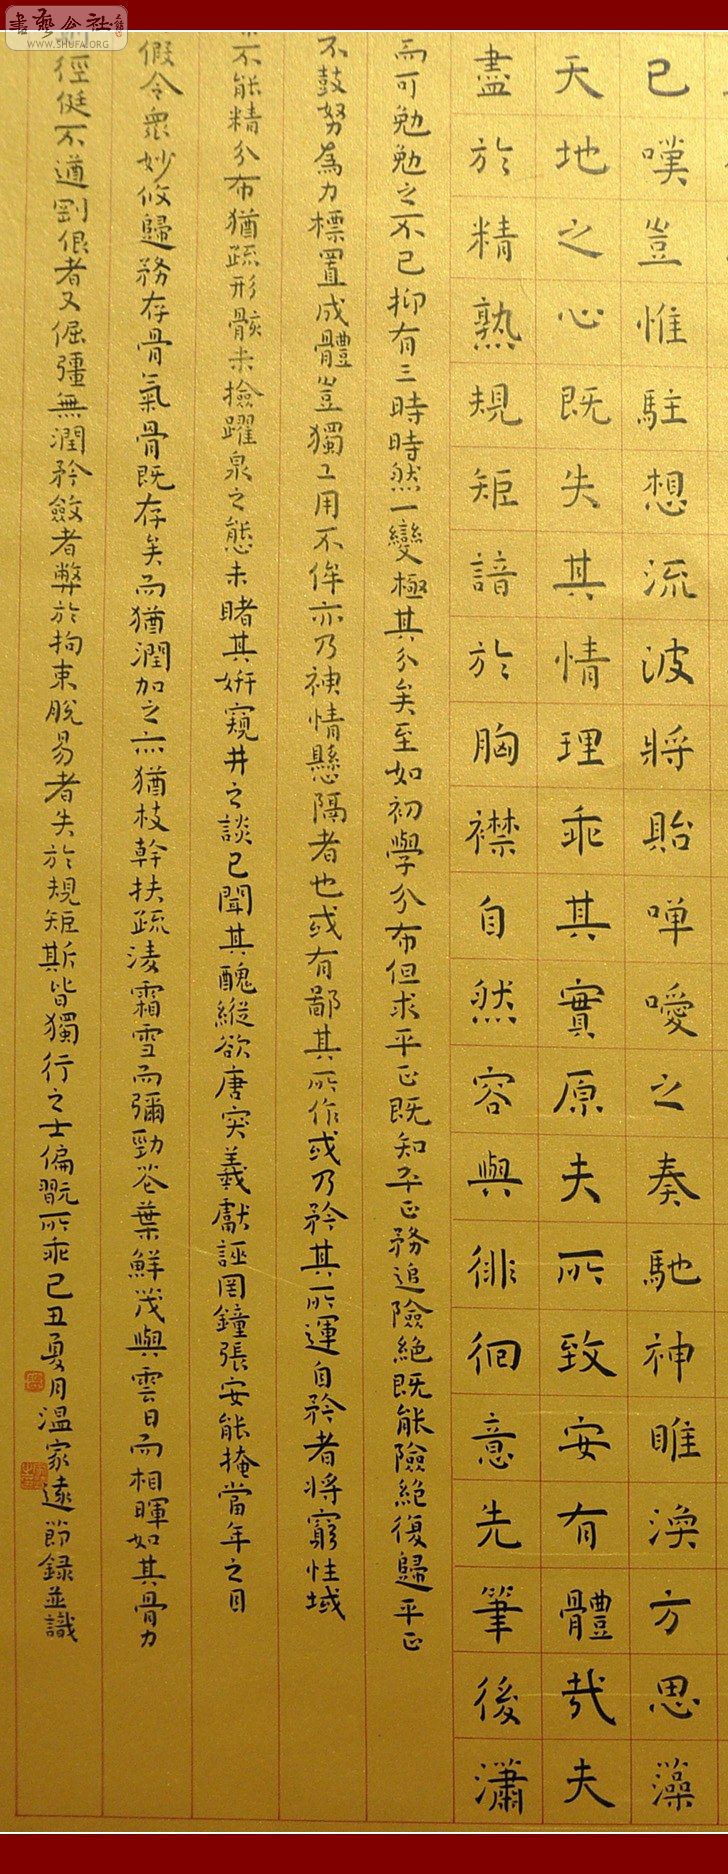 書藝公社
WWW.SHUFA.ORG
已嘆豈惟駐想流波將貽嘽噯之奏馳神睢渙方思藻
天地之心既失其情理乖其實原夫所致安有體哉夫
盡於精熟規矩諳於胸襟自然容與徘徊意先筆後瀟
而可勉勉之不已抑有三時時然一變極其分矣至如初學分布但求平正既知平正務追險絕既能險絕復歸平正
不鼓努為力標置成體豈獨工用不侔亦乃神情懸隔者也或有鄙其所作或乃矜其所運自矜者將窮性域
不能精分布猶疏形骸未撿躍泉之態未睹其妍窺井之談已聞其醜縱欲唐突羲獻誣罔鐘張安能掩當年之目
假令衆妙攸歸務存骨氣骨既存矣而猶潤加之亦猶枝幹扶疏淩霜雪而彌勁花葉鮮茂與雲日而相暉如其骨力
徑侹不遒剛佷者又倔彊無潤矜斂者弊於拘束脫易者失於規矩斯皆獨行之士偏翫所乖己丑夏月溫家遠節録並識